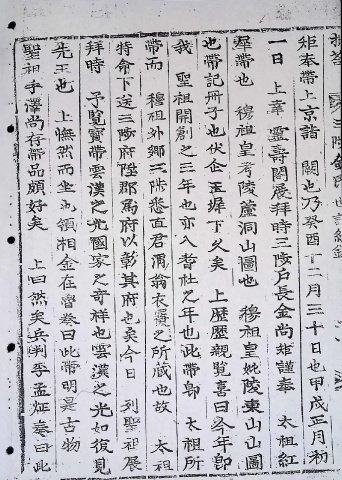 矩奉帶上京詣　闕也乃癸酉十二月三十日也甲戌正月初
一日　上幸　靈壽閣展拜時三陟戶長金尚矩謹奉　太祖紅
犀帶也　穆祖皇考陵蘆洞山圖也　穆祖皇妣陵東山山圖
也帶記冊子也伏企玉墀下久矣　上歷歷親覽喜曰今年卽
我　聖祖開創之三年也亦入耆社之年也此帶卽　太祖所
帶而　穆祖外鄕三陟悉直君渭翁衣履之所藏也故　太祖
特命下送三陟府陞郡爲府以彰其府也矣今日　列聖祖展
拜時　予覽寶帶雲漢之光國家之奇祥也雲漢之光如復見
先王也　上憮然而坐也領相金在魯奏曰此帶明是古物
聖祖手澤尚存帶品頗好矣　上曰然矣兵判李孟奏曰此